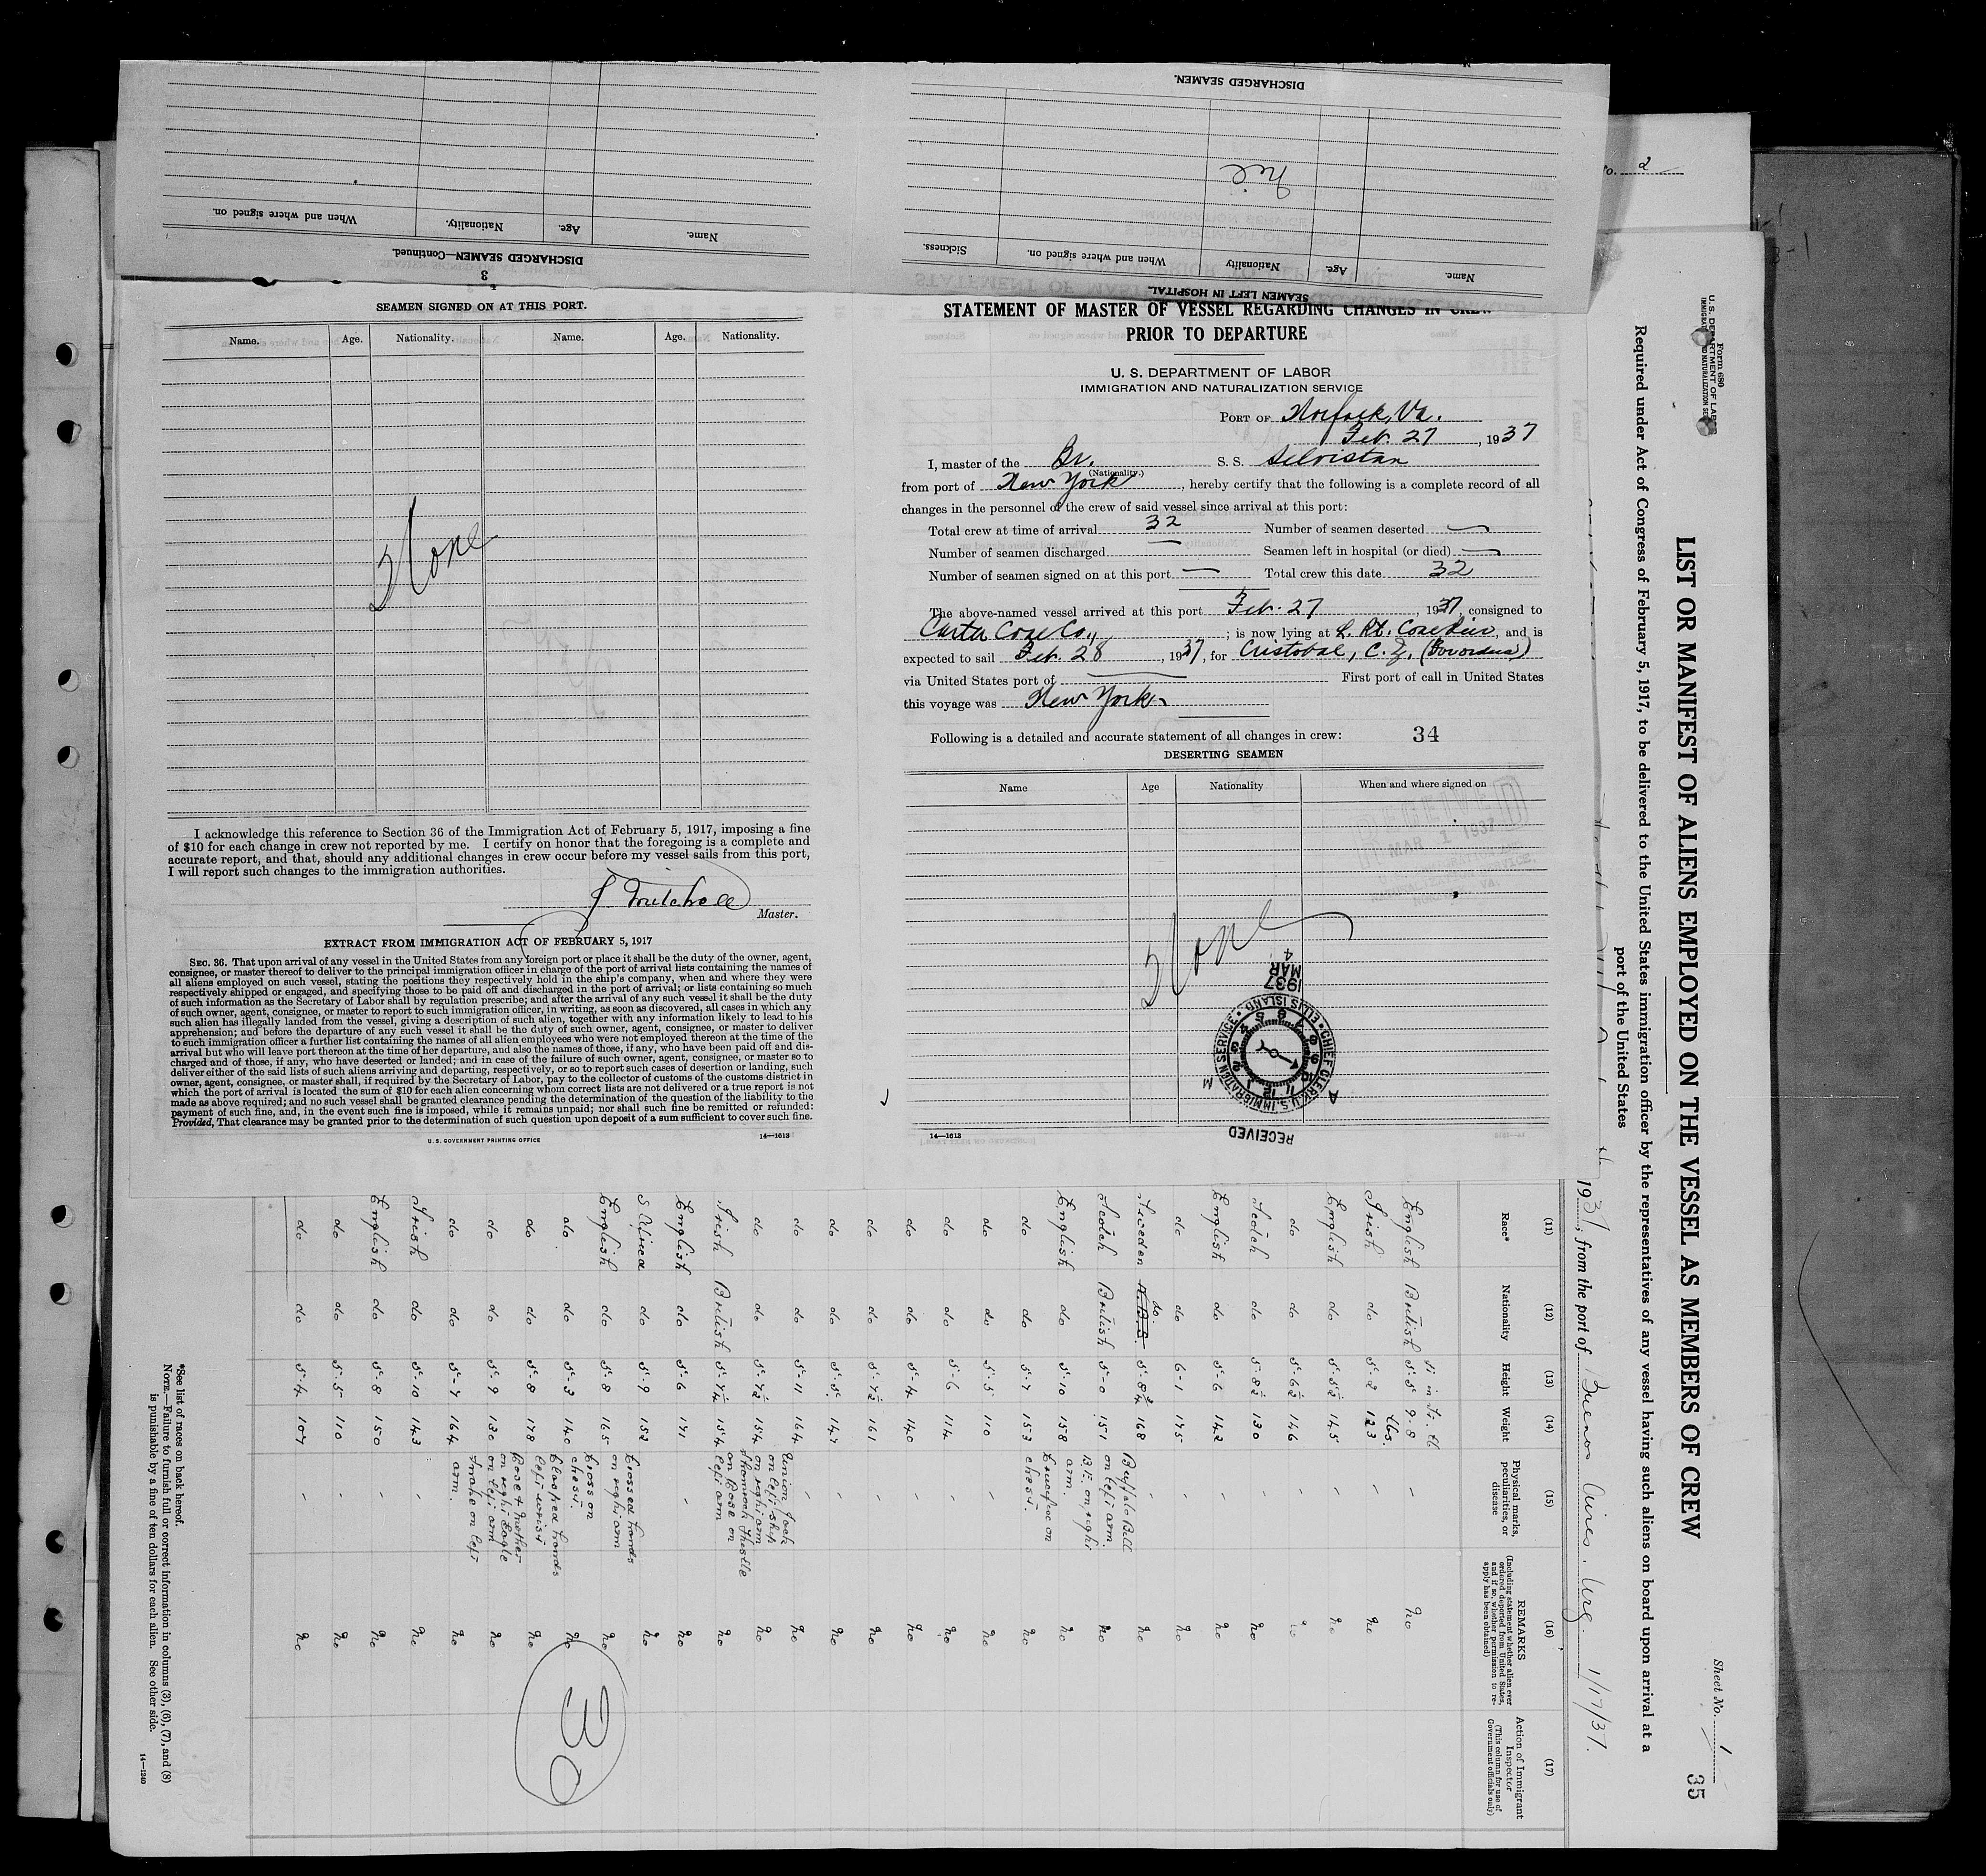 DISCHARGED SEAMEN—Continued.
3
Name.
Age.
Nationality.
When and where signed on.
DISCHARGED SEAMEN.
Nil
SEAMEN LEFT IN HOSPITAL.
Name.
Age.
Nationality
When and where signed on.
Sickness.
4
SEAMEN SIGNED ON AT THIS PORT.
Name. Age. Nationality. Name. Age. Nationality.
None
I acknowledge this reference to Section 36 of the Immigration Act of February 5, 1917, imposing a fine
of $10 for each change in crew not reported by me. I certify on honor that the foregoing is a complete and
accurate report, and that, should any additional changes in crew occur before my vessel sails from this port,
I will report such changes to the immigration authorities.
J Mitchell
Master.
EXTRACT FROM IMMIGRATION ACT OF FEBRUARY 5, 1917
SEC. 36. That upon arrival of any vessel in the United States from any foreign port or place it shall be the duty of the owner, agent,
consignee, or master thereof to deliver to the principal immigration officer in charge of the port of arrival lists containing the names of
all aliens employed on such vessel, stating the positions they respectively hold in the ship's company, when and where they were
respectively shipped or engaged, and specifying those to be paid off and discharged in the port of arrival; or lists containing so much
of such information as the Secretary of Labor shall by regulation prescribe; and after the arrival of any such vessel it shall be the duty
of such owner, agent, consignee, or master to report to such immigration officer, in writing, as soon as discovered, all cases in which any
such alien has illegally landed from the vessel, giving a description of such alien, together with any information likely to lead to his
apprehension; and before the departure of any such vessel it shall be the duty of such owner, agent, consignee, or master to deliver
to such immigration officer a further list containing the names of all alien employees who were not employed thereon at the time of the
arrival but who will leave port thereon at the time of her departure, and also the names of those, if any, who have been paid off and dis-
charged and of those, if any, who have deserted or landed; and in case of the failure of such owner, agent, consignee, or master so to
deliver either of the said lists of such aliens arriving and departing, respectively, or so to report such cases of desertion or landing, such
owner, agent, consignee, or master shall, if required by the Secretary of Labor, pay to the collector of customs of the customs district in
which the port of arrival is located the sum of $10 for each alien concerning whom correct lists are not delivered or a true report is not
made as above required; and no such vessel shall be granted clearance pending the determination of the question of the liability to the
payment of such fine, and, in the event such fine is imposed, while it remains unpaid; nor shall such fine be remitted or refunded:
Provided, That clearance may be granted prior to the determination of such question upon deposit of a sum sufficient to cover such fine.
U. S. GOVERNMENT PRINTING OFFICE 14—1613
STATEMENT OF MASTER OF VESSEL REGARDING CHANGES IN CREW
PRIOR TO DEPARTURE
U. S. DEPARTMENT OF LABOR
IMMIGRATION AND NATURALIZATION SERVICE
PORT OF Norfolk, Va.
Feb. 27, 1937
I, master of the Br. S. S. Silvistan
(Nationality.)
from port of New York, hereby certify that the following is a complete record of all
changes in the personnel of the crew of said vessel since arrival at this port:
Total crew at time of arrival 32 Number of seamen deserted —
Number of seamen discharged — Seamen left in hospital (or died) —
Number of seamen signed on at this port — Total crew this date 32
The above-named vessel arrived at this port Feb. 27, 1937, consigned to
Coal Co., ; is now lying at Pt. Coal Pier, and is
expected to sail Feb. 28, 1937, for Cristobal, C. Z. (For orders)
via United States port of — First port of call in United States
this voyage was New York.
Following is a detailed and accurate statement of all changes in crew: 34
DESERTING SEAMEN
Name Age Nationality When and where signed on
RECEIVED
MAR 1 1937
None
1937
MAR
4
CHIEF CLERK U.S. IMMIGRATION SERVICE • ELLIS ISLAND •
A M
RECEIVED
14—1613
No. 2
Form 680
U. S. DEPARTMENT OF LABOR
IMMIGRATION AND NATURALIZATION SERVICE
Sheet No. 1
35
LIST OR MANIFEST OF ALIENS EMPLOYED ON THE VESSEL AS MEMBERS OF CREW
Required under Act of Congress of February 5, 1917, to be delivered to the United States immigration officer by the representatives of any vessel having such aliens on board upon arrival at a
port of the United States
1937, from the port of Buenos Aires. Arg. 1/17/37.
(11) (12) (13) (14) (15) (16) (17)
Race* Nationality Height Weight Physical marks, peculiarities, or disease REMARKS (Including statement whether alien ever ordered deported from United States, and if so, whether permission to re-apply has been obtained) Action of Immigrant Inspector (This column for use of Government officials only)
English British 5-5 9-8 - no
Irish do 5-2 123 - no
English do 5-5½ 145 - no
do do 5-6½ 146 - no
Scotch do 5-8½ 130 - no
English do 5-6 142 - no
do do 6-1 175 - no
Sweden do. 5-8¾ 168 - no
Scotch British 5-0 151 Buffalo Bill on left arm. B.F. on right arm. no
English do 5-10 158 no
do do 5-7 153 Crucifix on chest. no
do do 5-5 110 - no
do do 5-6 114 - no
do do 5-4 140 - no
do do 5-7½ 161 - no
do do 5-5 147 - no
do do 5-11 164 - no
do do 5-7½ 154 Union Jack on left on right arm no
Irish British 5-7½ 154 Shamrock Thistle on Rose on left arm no
English do 5-6 171 - no
S. Africa do 5-9 152 Crossed hands on right arm no
English do 5-8 165 Cross on chest. no
do do 5-3 140 Clasped hands left wrist no
do do 5-8 178 Rose & Mother on right no
do do 5-9 130 Eagle on left arm no
do do 5-7 164 Snake on left arm. no
Irish do 5-10 143 - no
English do 5-8 150 - no
do do 5-5 110 - no
do do 5-4 107 - no
30
*See list of races on back hereof.
NOTE.—Failure to furnish full or correct information in columns (3), (6), (7), and (8)
is punishable by a fine of ten dollars for each alien. See other side.
14—1240